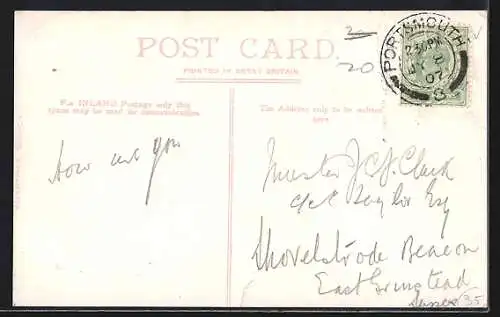 2
20
POST CARD.
PRINTED IN GREAT BRITAIN
PORTSMOUTH
2 30 PM
07
For INLAND Postage only this
space may be used for communication.
The Address only to be written
here.
How are you
Master J C J. Clark
Taylor Esq
Shovelstrode Beacon
East Grinstead
Sussex
35